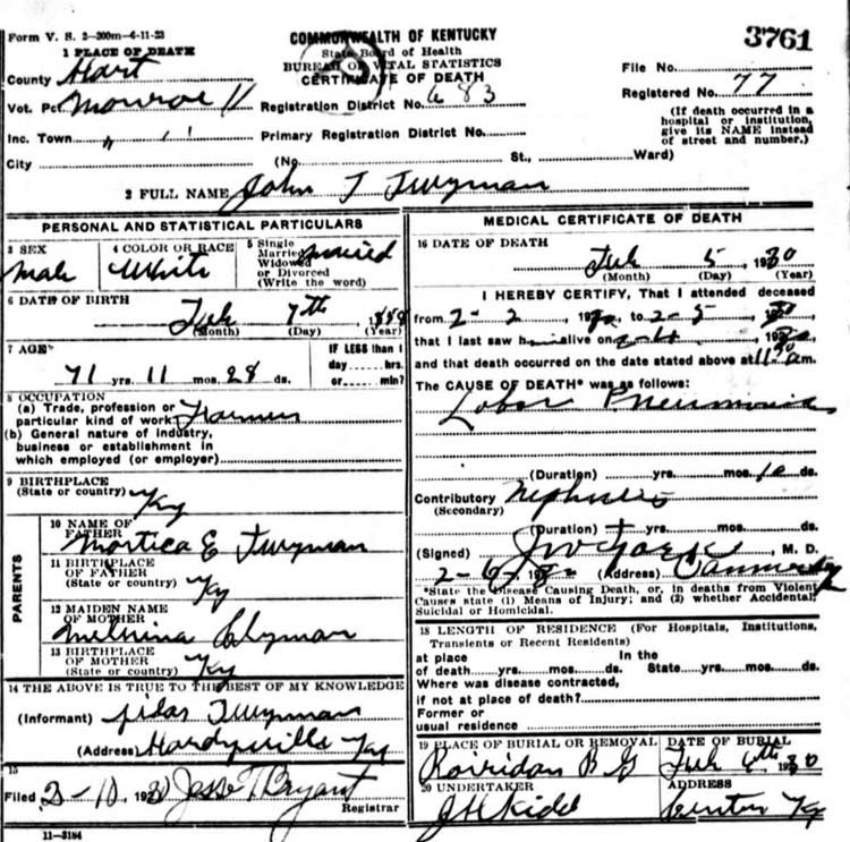 Form V. S. 2-300m-4-11-23
COMMONWEALTH OF KENTUCKY
3761
1 PLACE OF DEATH
State Board of Health
BUREAU OF VITAL STATISTICS
CERTIFICATE OF DEATH
File No.
County Hart
Registered No. 77
Vot. Pct. Monroe 11
Registration District No. 683
(If death occurred in a hospital or institution, give its NAME instead of street and number.)
Inc. Town
Primary Registration District No.
City (No. St., Ward)
2 FULL NAME John T Twyman
PERSONAL AND STATISTICAL PARTICULARS
3 SEX
Male
4 COLOR OR RACE
White
5 Single
Married
Widowed
or Divorced
(Write the word)
married
6 DATE OF BIRTH
Feb 7th
(Month) (Day) (Year)
7 AGE
71 yrs. 11 mos. 28 ds.
IF LESS than 1
day hrs.
or min?
8 OCCUPATION
(a) Trade, profession or
particular kind of work Farmer
(b) General nature of industry,
business or establishment in
which employed (or employer)
9 BIRTHPLACE
(State or country) Ky
PARENTS
10 NAME OF
FATHER
E Twyman
11 BIRTHPLACE
OF FATHER
(State or country) Ky
12 MAIDEN NAME
OF MOTHER
13 BIRTHPLACE
OF MOTHER
(State or country) Ky
14 THE ABOVE IS TRUE TO THE BEST OF MY KNOWLEDGE
(Informant) Twyman
(Address) Hardyville Ky
15
Filed 2-10, 1930 Jesse T Bryant
Registrar
11-3184
MEDICAL CERTIFICATE OF DEATH
16 DATE OF DEATH
Feb 5, 1930
(Month) (Day) (Year)
I HEREBY CERTIFY, That I attended deceased
from 2-2, 1930, to 2-5, 1930
that I last saw h alive on 2-4, 1930,
and that death occurred on the date stated above at 11:30 am.
The CAUSE OF DEATH* was as follows:
Lobar Pneumonia
(Duration) yrs. mos. 10 ds.
Contributory Nephritis
(Secondary)
(Duration) yrs. mos. ds.
(Signed) , M. D.
2-6, 1930 (Address)
*State the Disease Causing Death, or, in deaths from Violent
Causes state (1) Means of Injury; and (2) whether Accidental,
Suicidal or Homicidal.
18 LENGTH OF RESIDENCE (For Hospitals, Institutions,
Transients or Recent Residents)
at place In the
of death yrs. mos. ds. State yrs. mos. ds.
Where was disease contracted,
if not at place of death?
Former or
usual residence
19 PLACE OF BURIAL OR REMOVAL
B G
DATE OF BURIAL
Feb 6th 1930
20 UNDERTAKER
J H Kidd
ADDRESS
Center Ky